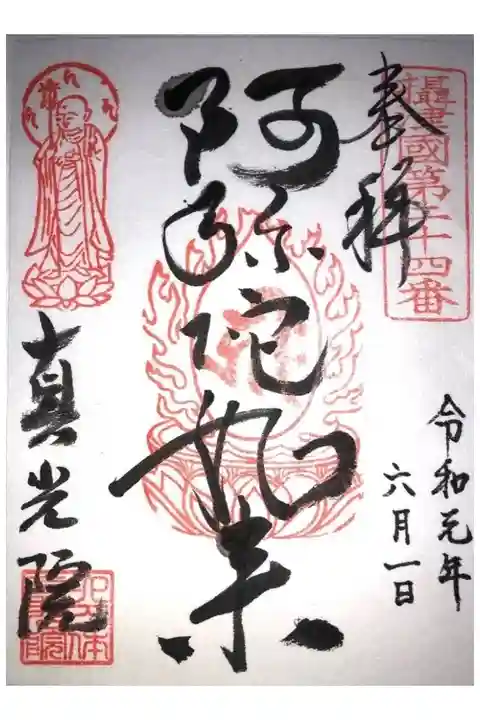 摂津國第三十四番
奉拝
令和元年
六月一日
阿弥陀如来
真光院